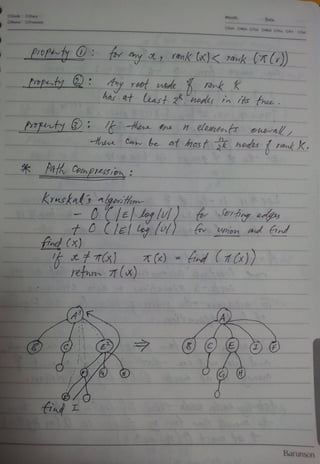 Month: Date:
property ①: for any x, rank(x) < rank (π(x))
property ②: Any root node of rank K
has at least 2^k nodes in its tree.
property ③: if there are n elements overall,
there can be at most n/2^k nodes of rank K.
* Path compression:
Kruskal's algorithm
- O(|E| log|V|) for sorting edges
+ O(|E| log|V|) for union and find
find(x)
if x ≠ π(x) π(x) = find(π(x))
return π(x)
A³ A
B⁰ C E² ⇒ B C E I F
G H G H
find I
Barunson